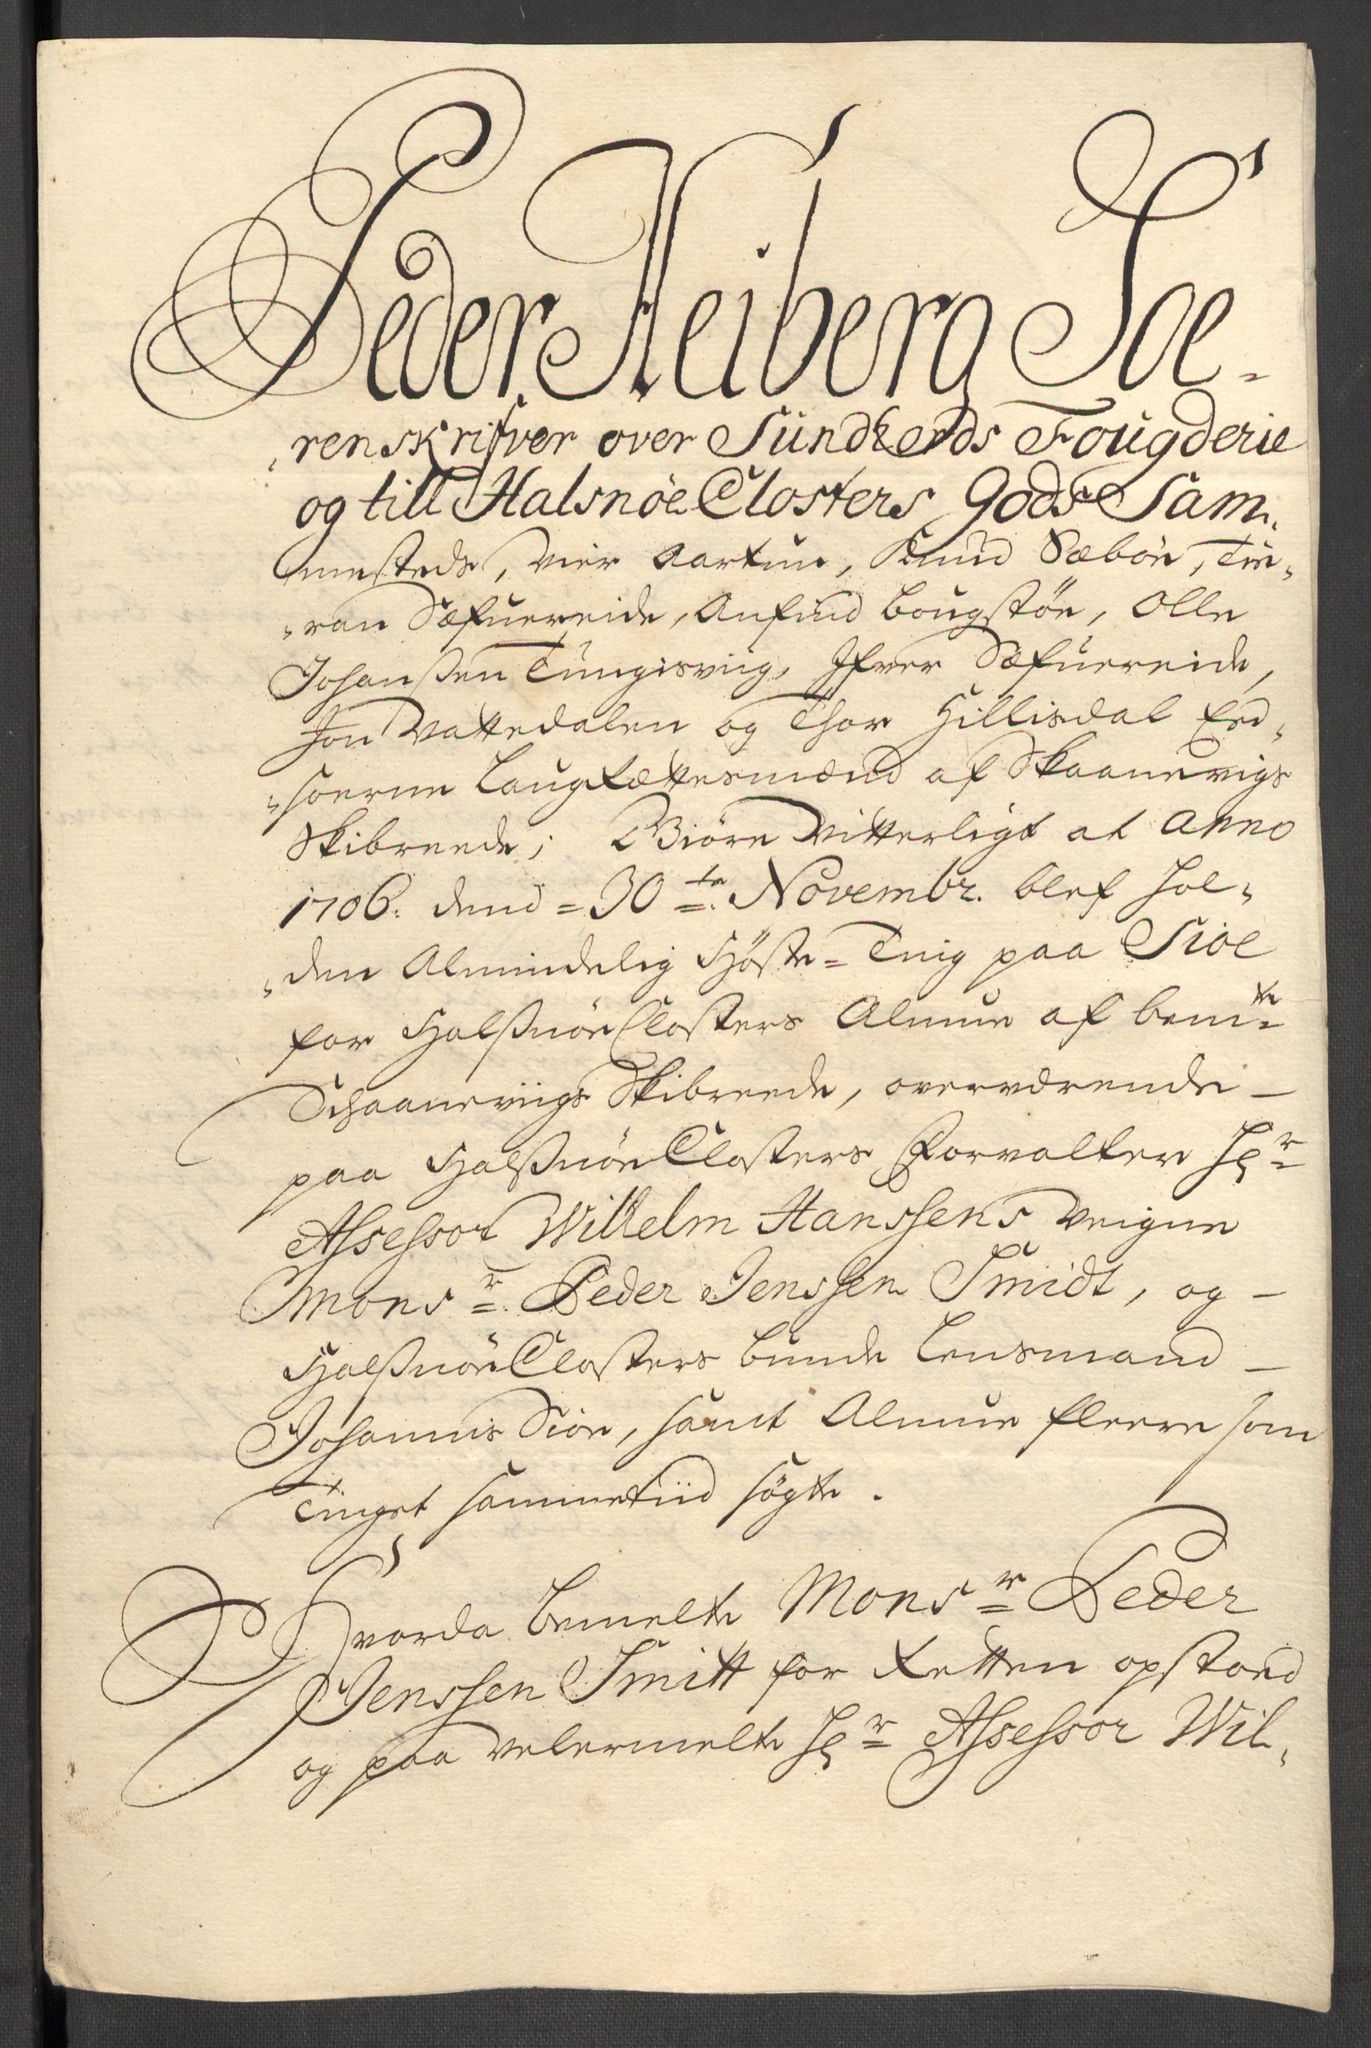 Peder Heiberg Soe-
renskrifver over Sundhords Fougderie
og till Halsnøe Closters Gods Sam-
mesteds, Vier Aartun, Knud Sæbøe, Tie-
ran Sæfuereide, Anfind Bougstøe, Olle
Johansßen Tungisviig, Ifver Sæfuereide,
Jon Vattedalen og Thor Hillisdal Eed-
soerne Laugrættesmænd af Skaanevigs
Skibreede; Giøre Vitterligt at Anno
1706. dend = 30te Novembr. blef Hol-
den Almindelig Høste-Ting paa Sioe
for Halßnøe Closters Almue af bemte
Schaaneviigs Skibreede, overværende
paa Halßnøe Closters Forvalter Hr
Assessor Willelm Hanssens Veigne
Monsr. Peder Jenssen Smidt, og
Halßnøe Closters bunde Lensmand
Johannis Sioe, samt Almue fleere som
Tinget sammetiid søgte.
Hvorda bemelte Monsr Peder
Jenssen Smitt for Retten opstoed
og paa velermelte Hr Assessor Wil-